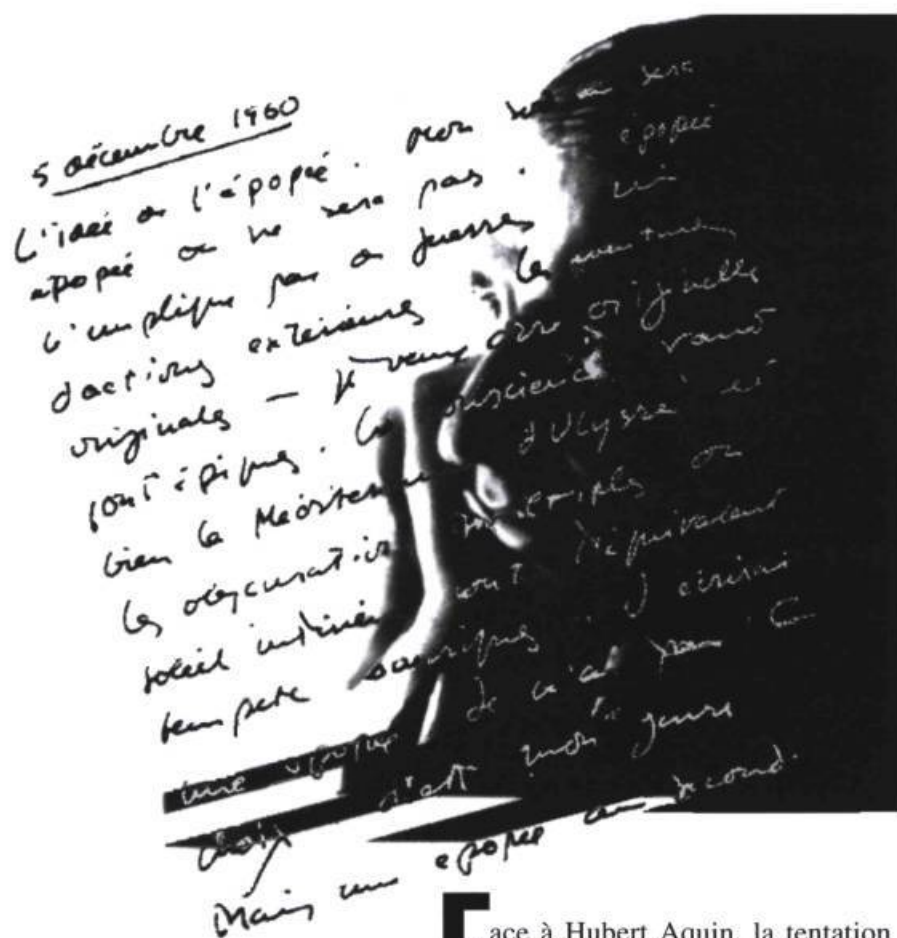 5 décembre 1960
L'idée de l'épopée. Mon sera
épopée ou ne sera pas. épopée
n'implique pas de guerres ni
d'actions extérieures. Les aventures
originales — je veux dire originelles
sont épiques. La conscience vaut
bien la Méditerranée d'Ulysse et
les obscurations multiples du
soleil intérieur sont l'équivalent
tempête J'écrirai
une épopée. Je n'ai pas le
choix c'est mon genre
Mais une épopée au second.
Face à Hubert Aquin, la tentation